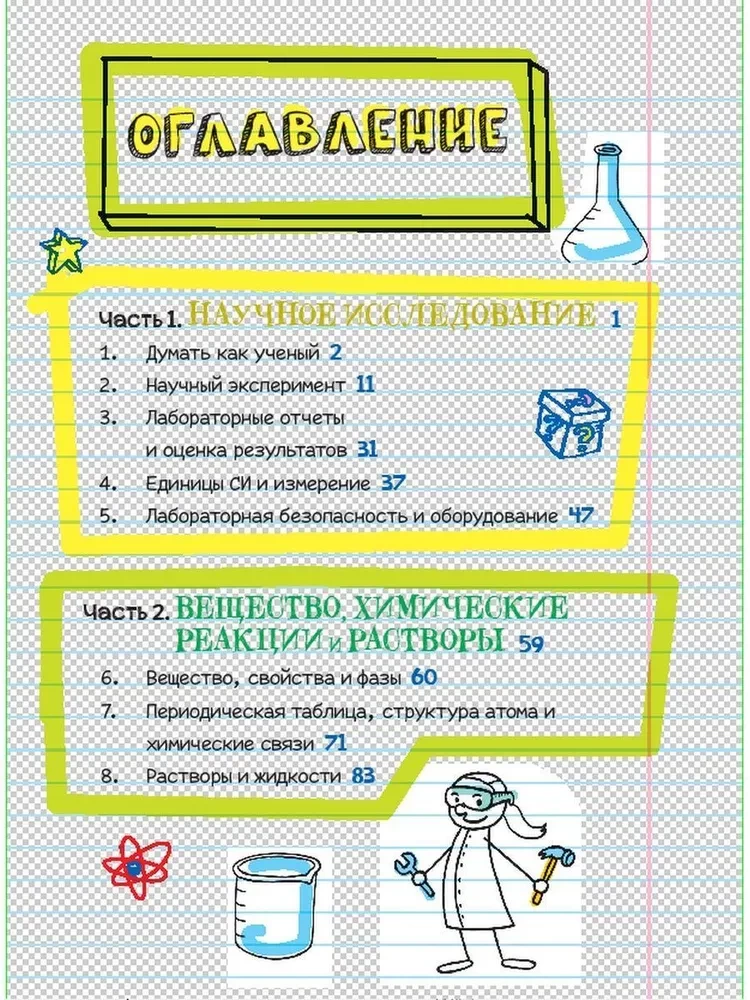 ОГЛАВЛЕНИЕ
Часть 1. НАУЧНОЕ ИССЛЕДОВАНИЕ 1
1. Думать как ученый 2
2. Научный эксперимент 11
3. Лабораторные отчеты
и оценка результатов 31
4. Единицы СИ и измерение 37
5. Лабораторная безопасность и оборудование 47
Часть 2. ВЕЩЕСТВО, ХИМИЧЕСКИЕ
РЕАКЦИИ и РАСТВОРЫ 59
6. Вещество, свойства и фазы 60
7. Периодическая таблица, структура атома и
химические связи 71
8. Растворы и жидкости 83